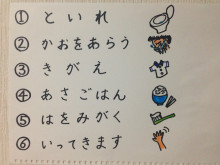 ① といれ
② かおをあらう
③ きがえ
④ あさごはん
⑤ はをみがく
⑥ いってきます